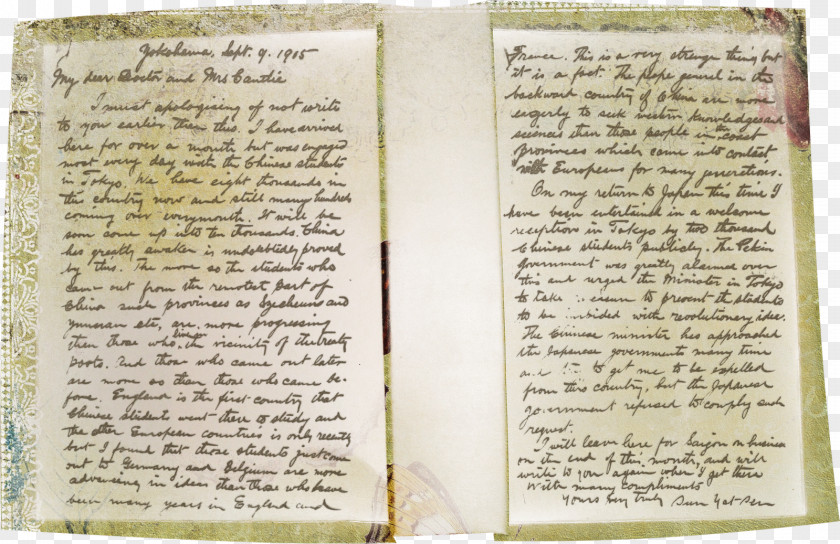 Yokohama, Sept. 9. 1905
My dear Doctor and Mrs Cantlie
I must apologising of not write
to you earlier than this. I have arrived
here for over a month but was engaged
most every day with the Chinese students
in Tokyo. We have eight thousands in
this country now and still many hundreds
coming over everymonth. It will be
soon come up into ten thousands. China
has greatly awaken is undoubtedly proved
by this. The more so the students who
came out from the remotest part of
China such provinces as Szechuen and
Yunnan etc, are more progressing
than those who live the vicinity of the treaty
ports. And those who came out later
are more so than those who came be-
fore. England is the first country that
Chinese students went there to study and
the other European countries is only recently
but I found that those students just come
out to Germany and Belgium are more
advancing in ideas than those who have
been many years in England and
France. This is a very strange thing but
it is a fact. The people general in the
backward country of China are more
eagerly to seek western knowledges and
sciences than those people in the coast
provinces which came into contact
with Europeans for many generations.
On my return to Japan this time I
have been entertained in a welcome
reception in Tokyo by two thousand
Chinese students publicly. The Pekin
government was greatly alarmed over
this and urged the Minister in Tokyo
to take to prevent the students
to be with revolutionary idea.
The Chinese minister has approached
the Japanese governments many time
and to get me to be expelled
from this country, but the Japanese
government refused to comply such
request.
I will leave here for Saigon on business
on the end of this month, and will
write to you again when I get there
With many compliments
Yours very truly Sun Yat-Sen